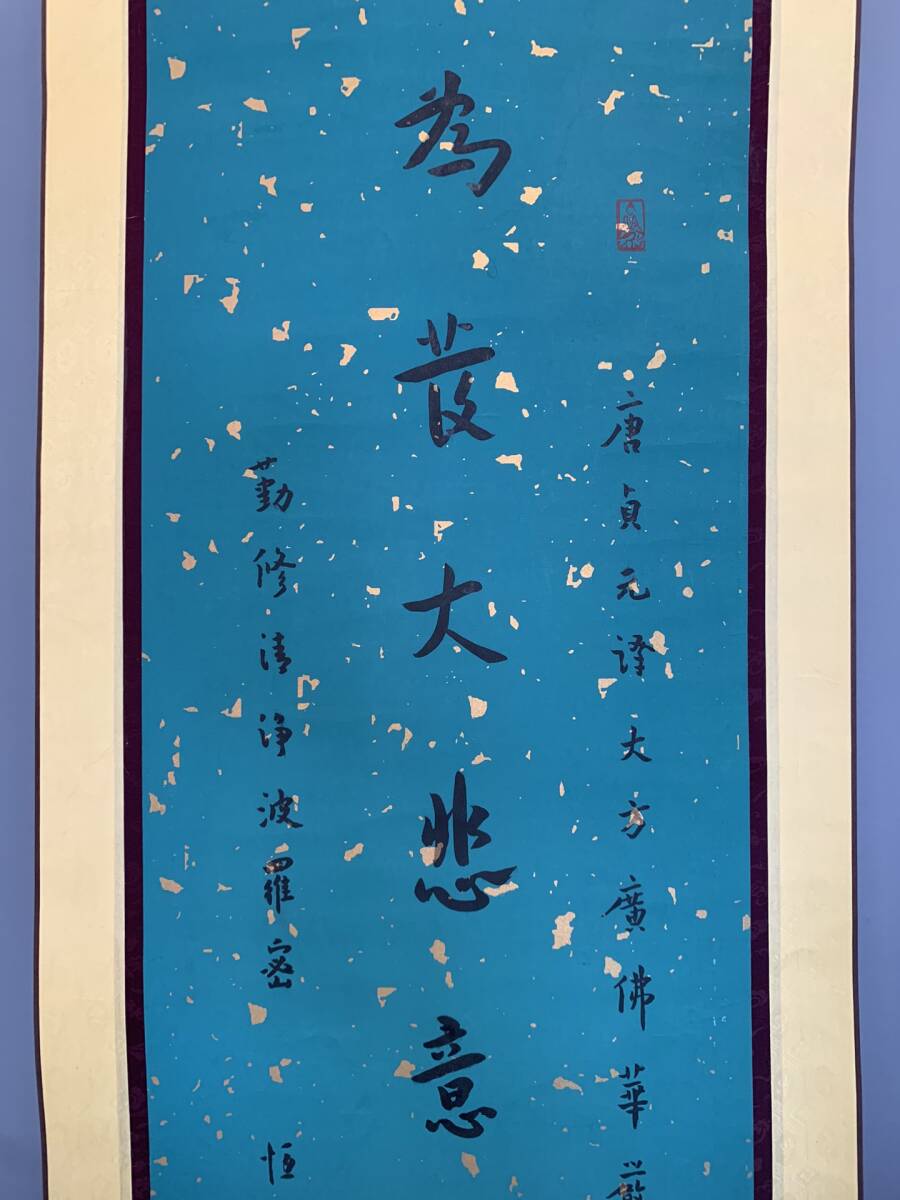 唐貞元譯大方廣佛華嚴
為發大悲意
勤修清淨波羅密 恒